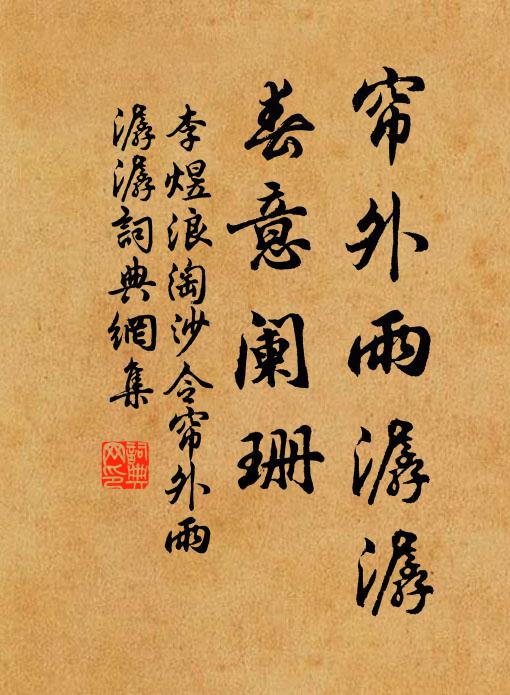 帘外雨潺潺
春意阑珊
李煜浪淘沙令帘外雨
潺潺詞典網集
詞典网印